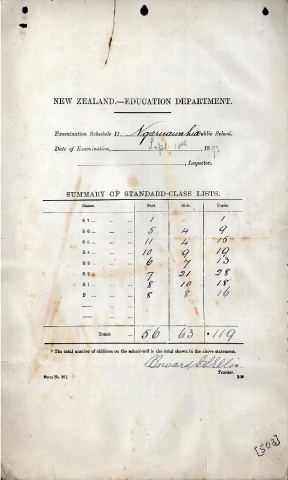 NEW ZEALAND.—EDUCATION DEPARTMENT.
Examination Schedule II. Ngaruawahia Public School.
Date of Examination, Sept. 18th 1893
, Inspector.
SUMMARY OF STANDARD-CLASS LISTS.
Classes Boys. Girls. Totals.
S 7 ... ... 1 . 1
S 6 ... ... 5 4 9
S 5 ... ... 11 4 15
S 4 ... ... 10 9 19
S 3 ... ... 6 7 13
S 2 ... ... 7 21 28
S 1 ... ... 8 10 18
P ... ... 8 8 16
Totals ... 56 63 119
* The total number of children on the school-roll is the total shown in the above statement.
Howard Ellis.
Teacher.
[503]